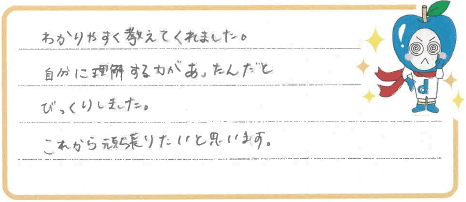 わかりやすく教えてくれました。
自分に理解する力があったんだと
びっくりしました。
これから頑張りたいと思います。
d